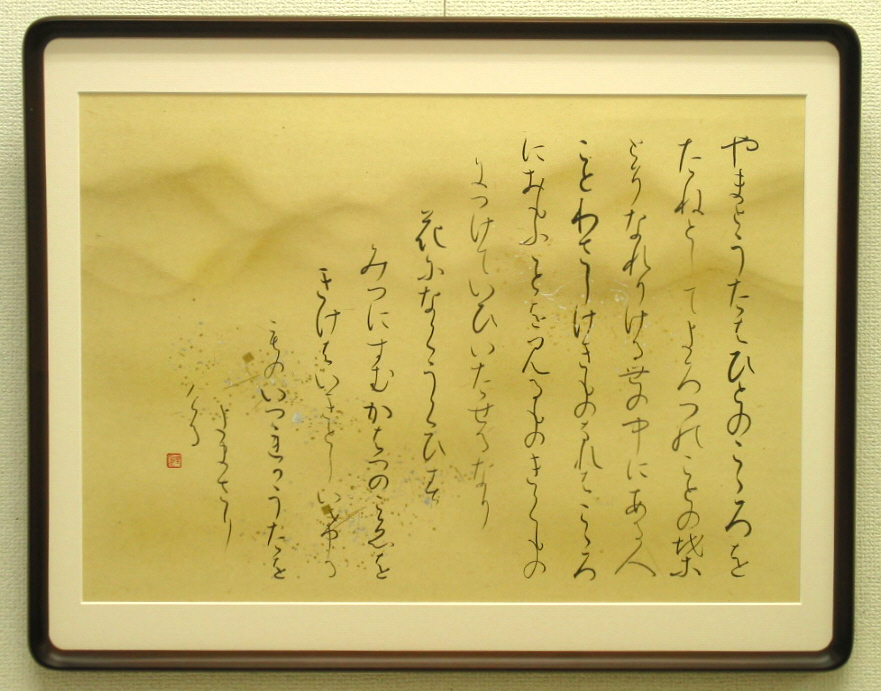 やまとうたはひとのこゝろを
たねとしてよろつのことの葉
とそなれりける世の中にある人
ことわさしけきものなれはこゝろ
におもふことを見るものきくもの
につけていひいたせるなり
花になくうくひす
みつにすむかはつの聲を
きけはいきとしいけ
ものいつれかうたを
よまさり
ける